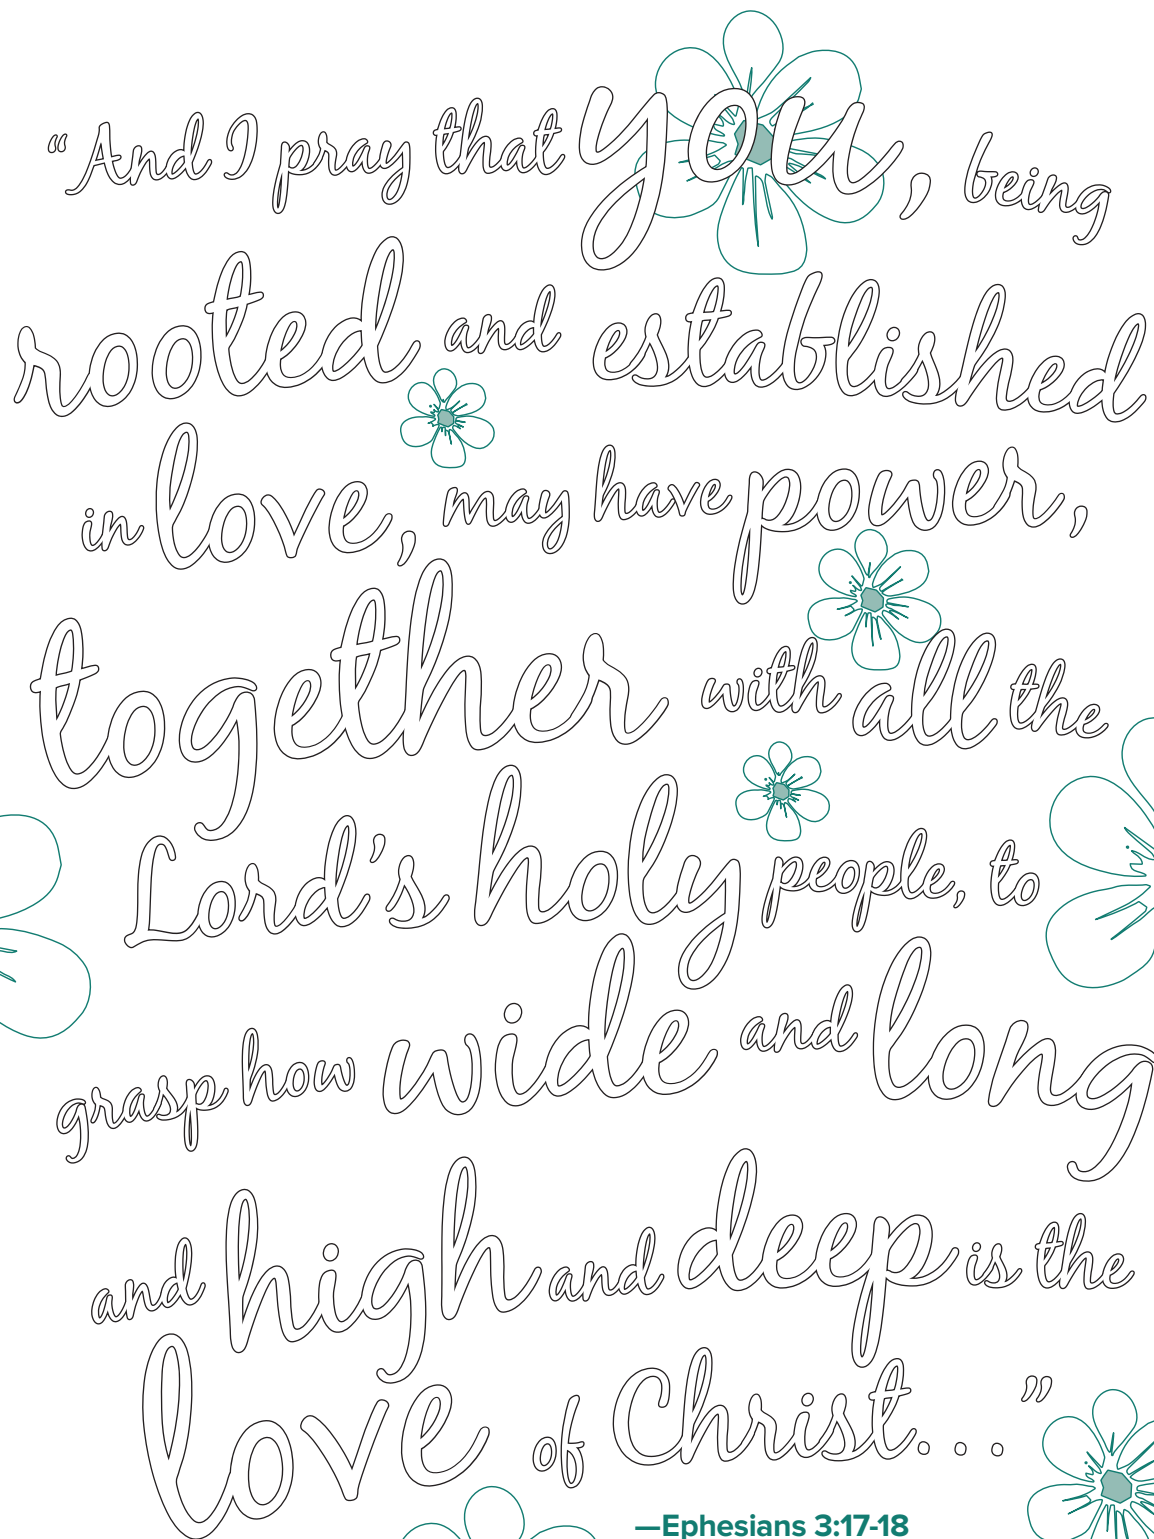 “And I pray that you, being
rooted and established
in love, may have power,
together with all the
Lord’s holy people, to
grasp how wide and long
and high and deep is the
love of Christ...”
—Ephesians 3:17-18